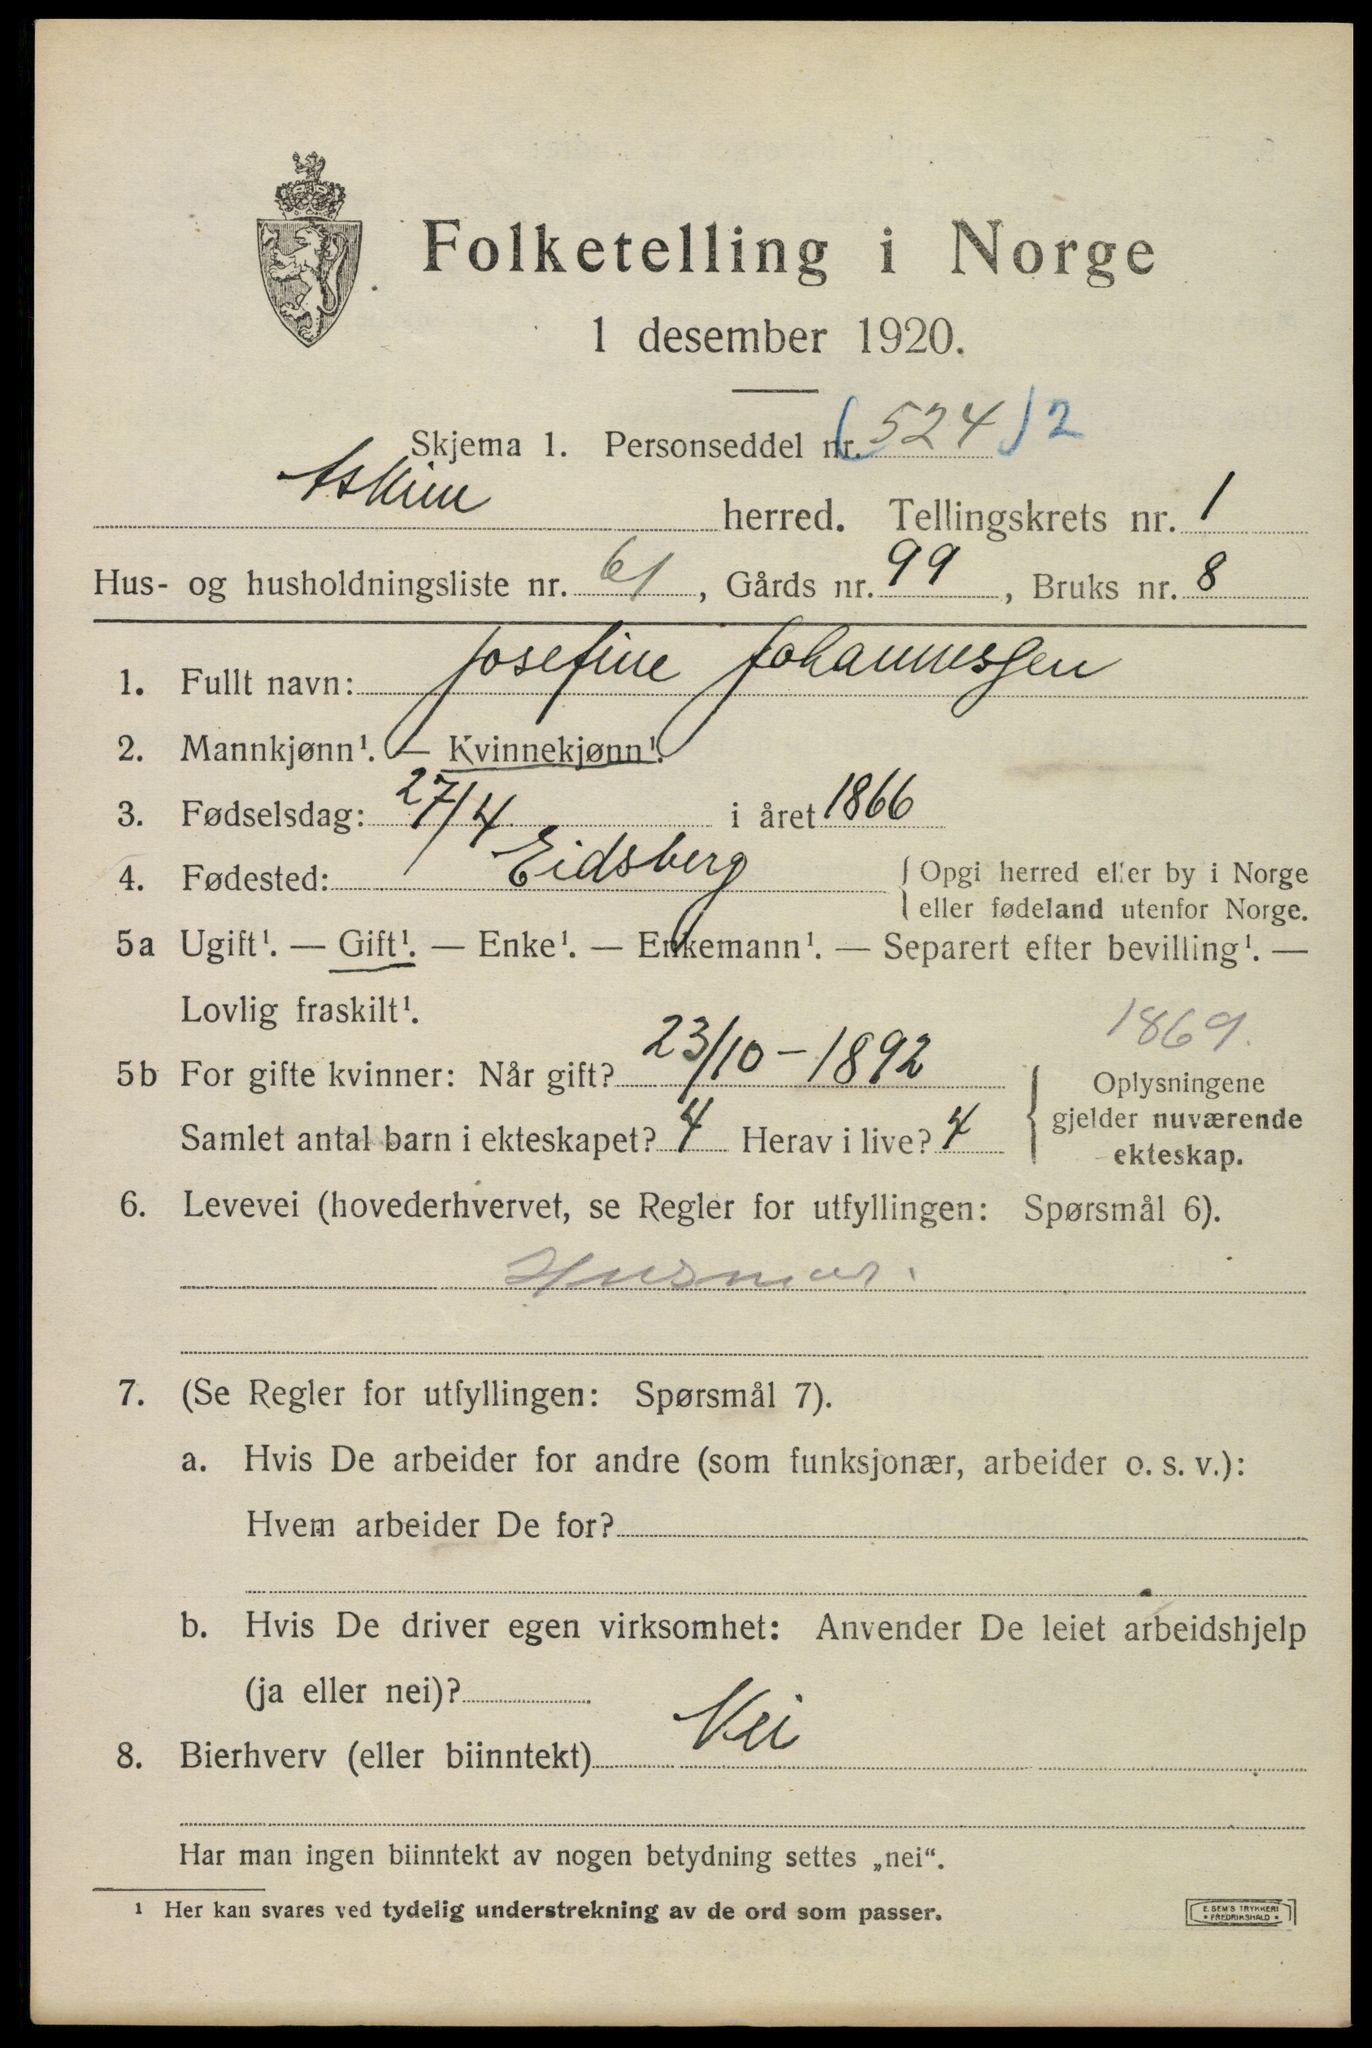 Folketelling i Norge
1 desember 1920.
Skjema 1. Personseddel nr. (524)2
Askim herred. Tellingskrets nr. 1
Hus- og husholdningsliste nr. 61, Gårds nr. 99, Bruks nr. 8
1. Fullt navn: Josefine Johannessen
2. Mannkjønn¹. — Kvinnekjønn¹.
3. Fødselsdag: 27/4 i året 1866
4. Fødested: Eidsberg { Opgi herred eller by i Norge
{ eller fødeland utenfor Norge.
5a Ugift¹. — Gift¹. — Enke¹. — Enkemann¹. — Separert efter bevilling¹. —
Lovlig fraskilt¹.
1869.
5b For gifte kvinner: Når gift? 23/10 – 1892
Samlet antal barn i ekteskapet? 4 Herav i live? 4
Oplysningene
gjelder nuværende
ekteskap.
6. Levevei (hovederhvervet, se Regler for utfyllingen: Spørsmål 6).
Husmor.
7. (Se Regler for utfyllingen: Spørsmål 7).
a. Hvis De arbeider for andre (som funksjonær, arbeider o. s. v.):
Hvem arbeider De for?
b. Hvis De driver egen virksomhet: Anvender De leiet arbeidshjelp
(ja eller nei)?
8. Bierhverv (eller biinntekt) Nei
Har man ingen biinntekt av nogen betydning settes „nei“.
¹ Her kan svares ved tydelig understrekning av de ord som passer.
E. SEM'S TRYKKERI
* FREDRIKSHALD *